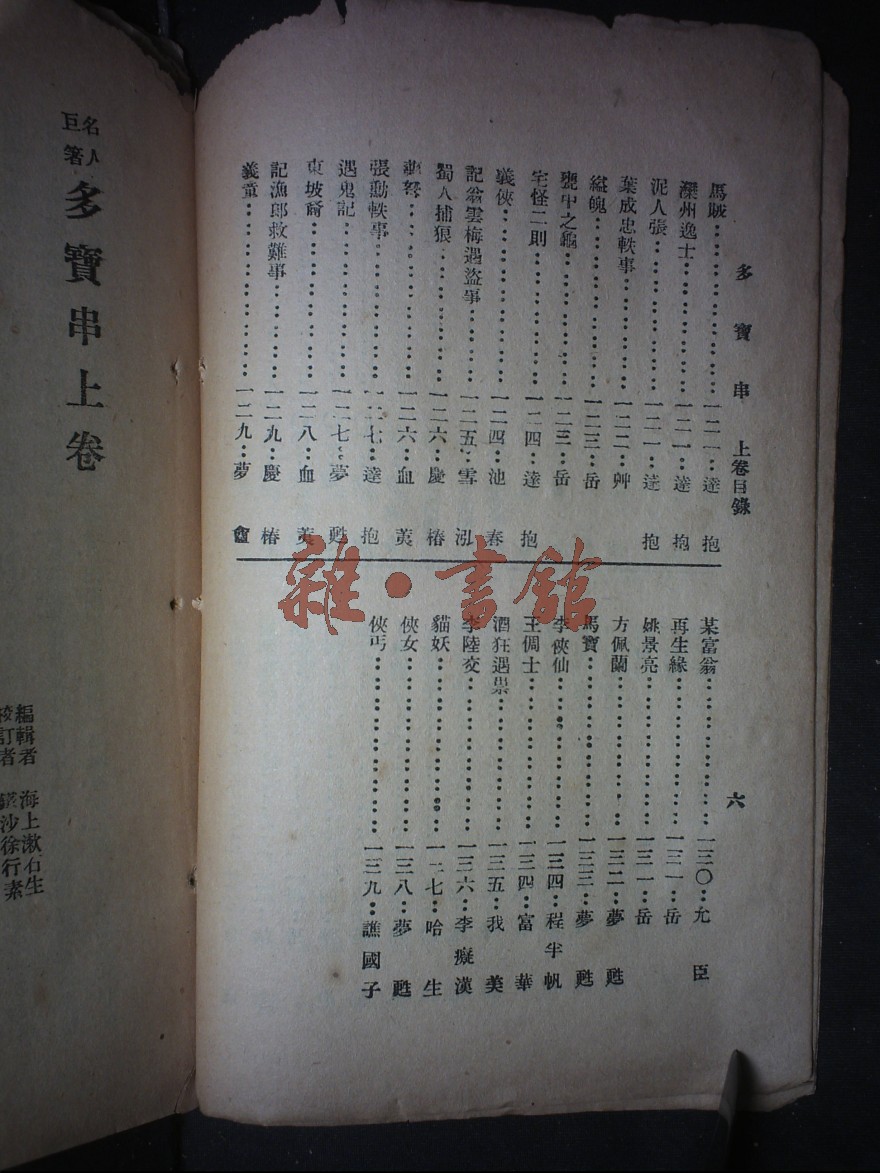 多寶串 上卷目錄
六
馬賊……一二一‥達抱
灤州逸士……一二一‥達抱
泥人張……一二一‥達抱
葉成忠軼事……一二二‥艸
縊魄……一二三‥岳
甕中之龜……一二三‥岳
宅怪二則……一二四‥達抱
義俠……一二四‥池春
記翁雲梅遇盜事……一二五‥雪泓
蜀人捕狼……一二六‥慶椿
……一二六‥血蓂
張勳軼事……一二七‥達抱
遇鬼記……一二七‥夢甦
東坡裔……一二八‥血蓂
記漁郎救難事……一二九‥慶椿
義童……一二九‥夢盦
某富翁……一三〇‥尤臣
再生緣……一三一‥岳
姚景亮……一三一‥岳
方佩蘭……一三二‥夢甦
馬寶……一三三‥夢甦
李俠仙……一三四‥程半帆
王倜士……一三四‥富華
酒狂遇祟……一三五‥我美
李陸交……一三六‥李癡漢
貓妖……一三七‥哈生
俠女……一三八‥夢甦
俠丐……一三九‥譙國子
雜·書館
名人
巨箸
多寶串上卷
編輯者 海上漱石生
校訂者 沙徐行素